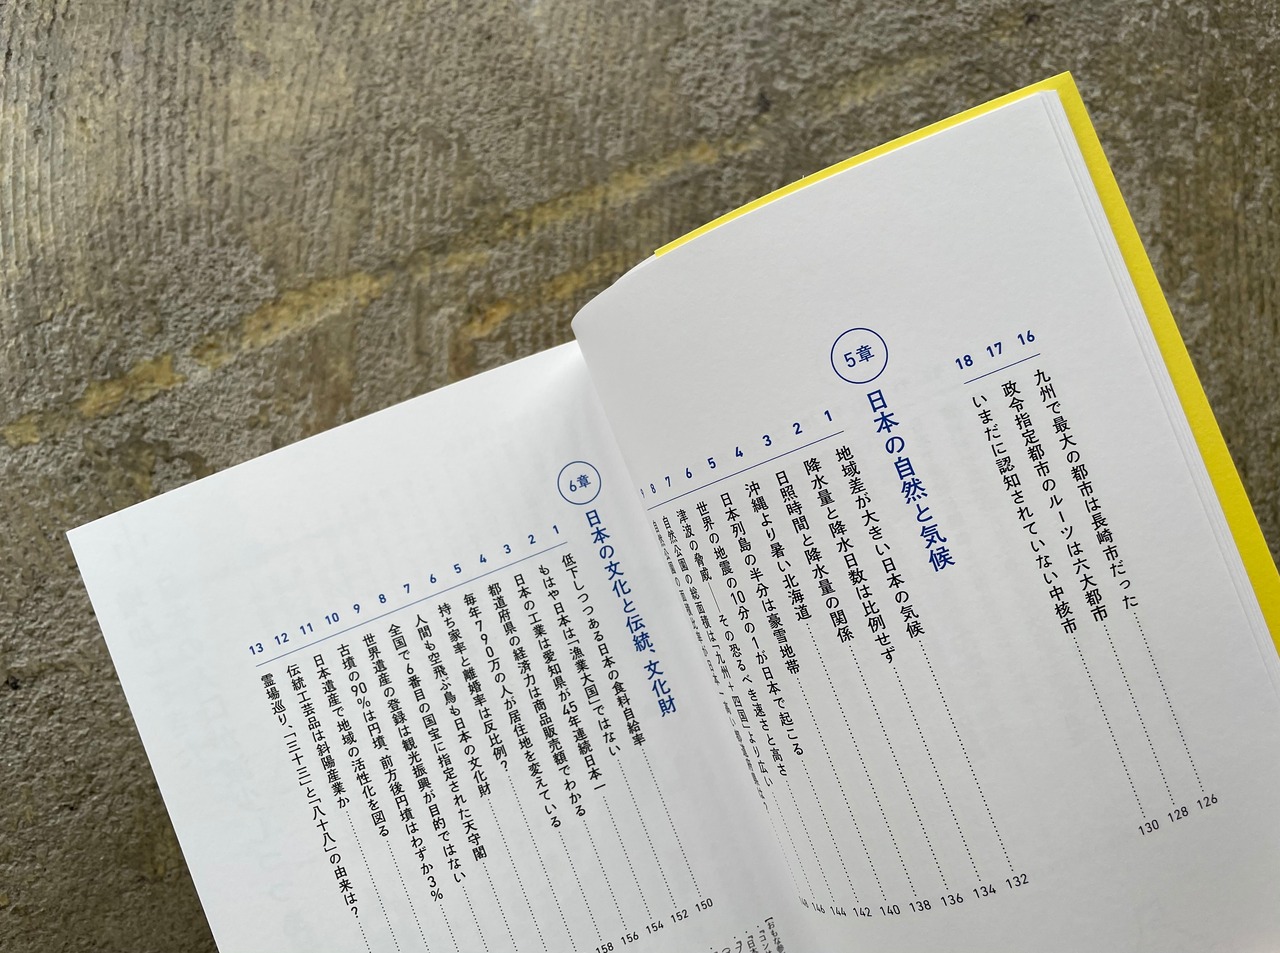 16 九州で最大の都市は長崎市だった 126
17 政令指定都市のルーツは六大都市 128
18 いまだに認知されていない中核市 130
5章 日本の自然と気候
1 地域差が大きい日本の気候 132
2 降水量と降水日数は比例せず 134
3 日照時間と降水量の関係 136
4 沖縄より暑い北海道 138
5 日本列島の半分は豪雪地帯 140
6 世界の地震の10分の1が日本で起こる 142
7 津波の脅威――その恐るべき速さと高さ 144
8 自然公園の総面積は「九州+四国」より広い 146
6章 日本の文化と伝統、文化財
1 低下しつつある日本の食料自給率 150
2 もはや日本は「漁業大国」ではない 152
3 日本の工業は愛知県が45年連続日本一 154
4 都道府県の経済力は商品販売額でわかる 156
5 毎年790万の人が居住地を変えている 158
6 持ち家率と離婚率は反比例?
7 人間も空飛ぶ鳥も日本の文化財
8 全国で6番目の国宝に指定された天守閣
9 世界遺産の登録は観光振興が目的ではない
10 古墳の90%は円墳、前方後円墳はわずか3%
11 日本遺産で地域の活性化を図る
12 伝統工芸品は斜陽産業か
13 霊場巡り、「三十三」と「八十八」の由来は?